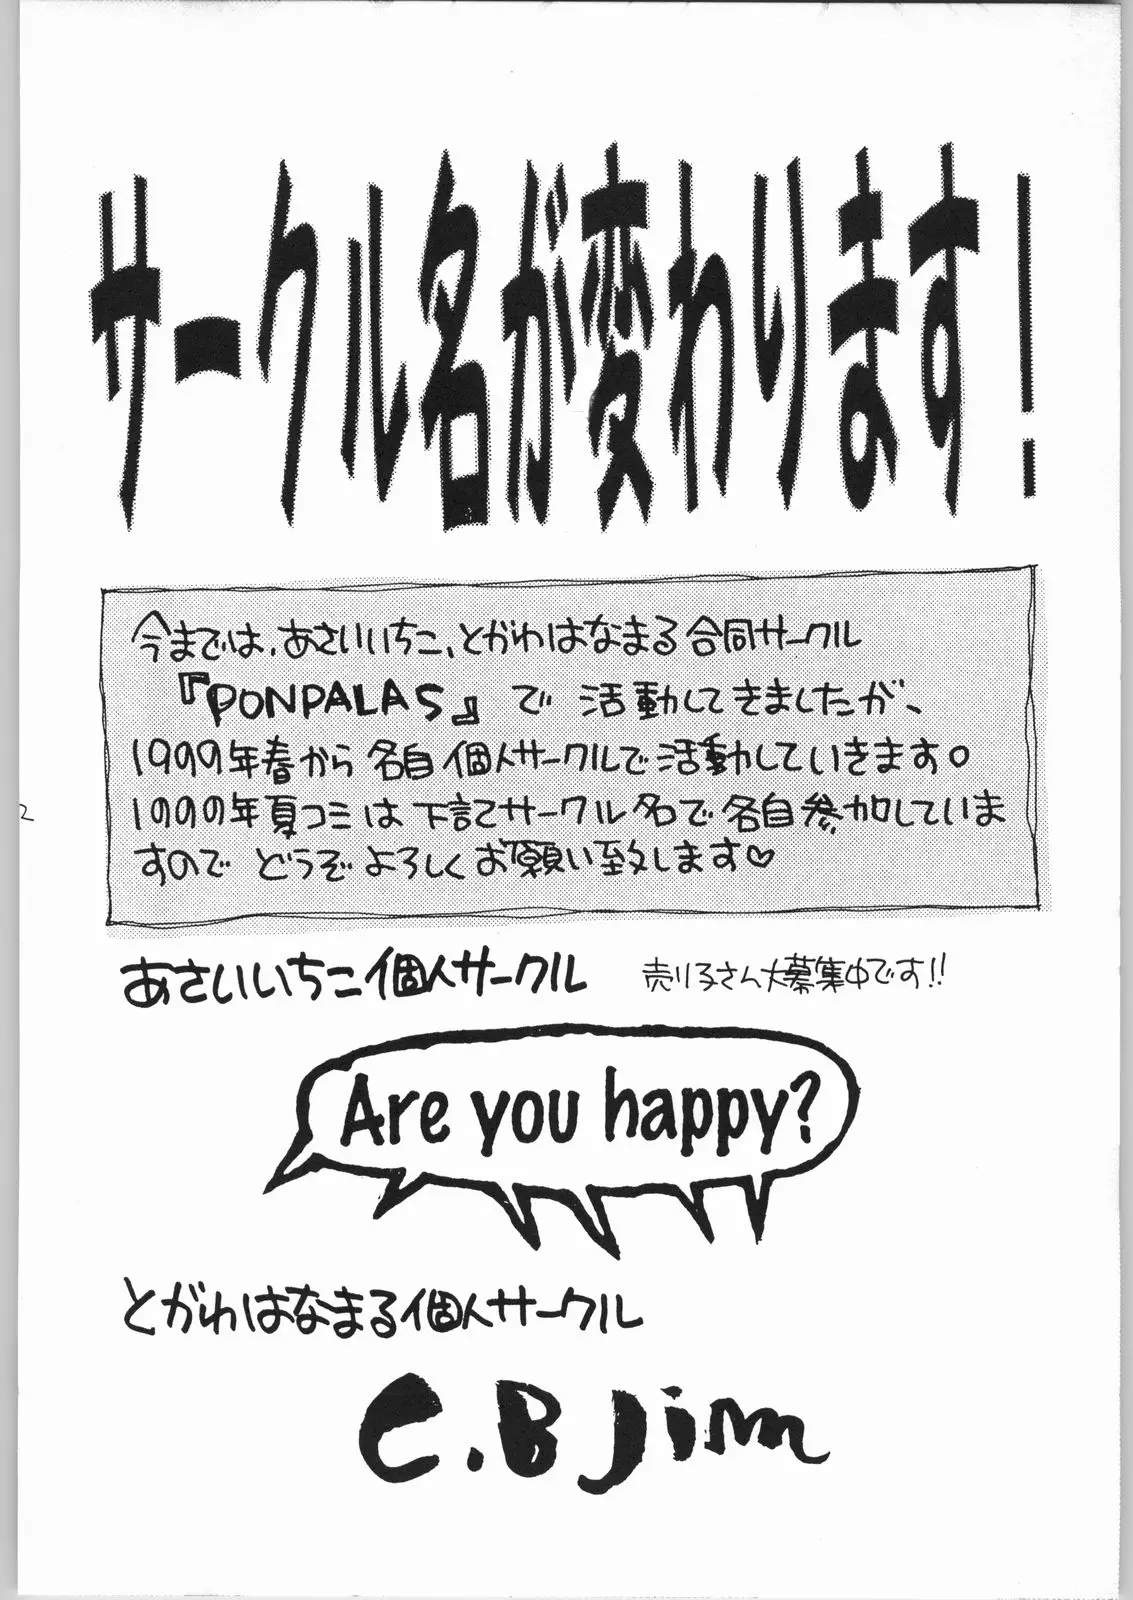 サークル名が変わります!
今までは、あさいいちこ、とがわはなまる合同サークル
『PONPALAS』で活動してきましたが、
1999年春から各自個人サークルで活動していきます。
1999年夏コミは下記サークル名で各自参加していま
すので どうぞよろしくお願い致します♡
あさいいちこ個人サークル
売り子さん大募集中です!!
Are you happy?
とがわはなまる個人サークル
C.B Jim
2